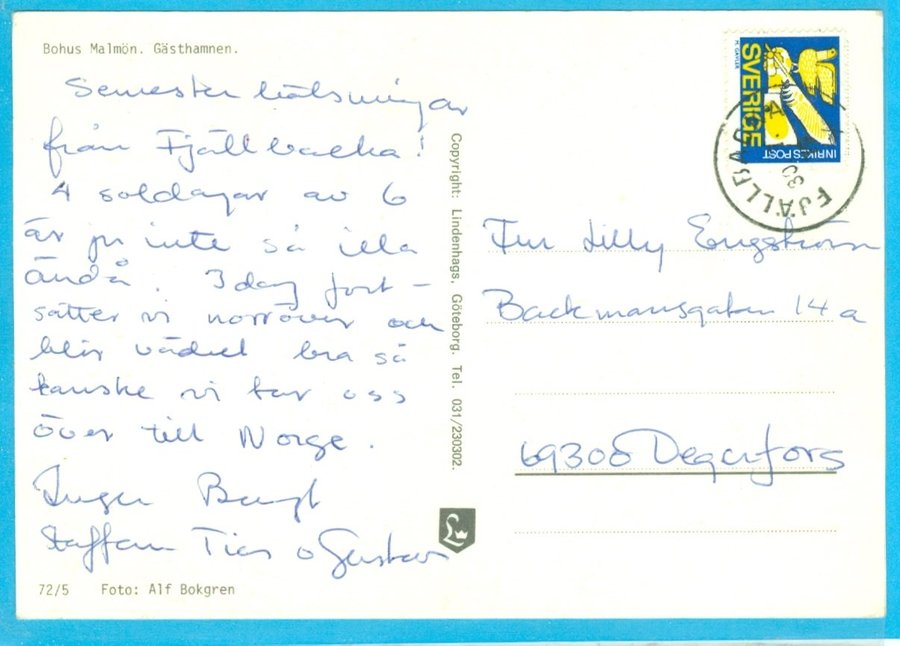 Bohus Malmön. Gästhamnen.
Semesterhälsningar
från Fjällbacka!
4 soldagar av 6
är ju inte så illa
ändå. Idag fort-
sätter vi norröver och
blir vädret bra så
kanske vi tar oss
över till Norge.
Inger Bengt
Staffan o Gustav
72/5 Foto: Alf Bokgren
Copyright: Lindenhags, Göteborg. Tel. 031/230302.
L
H. GAVLER
SVERIGE
INRIKES POST
FJÄLLBA
30
Fru Lilly Engström
Backmansgatan 14 a
69300 Degerfors